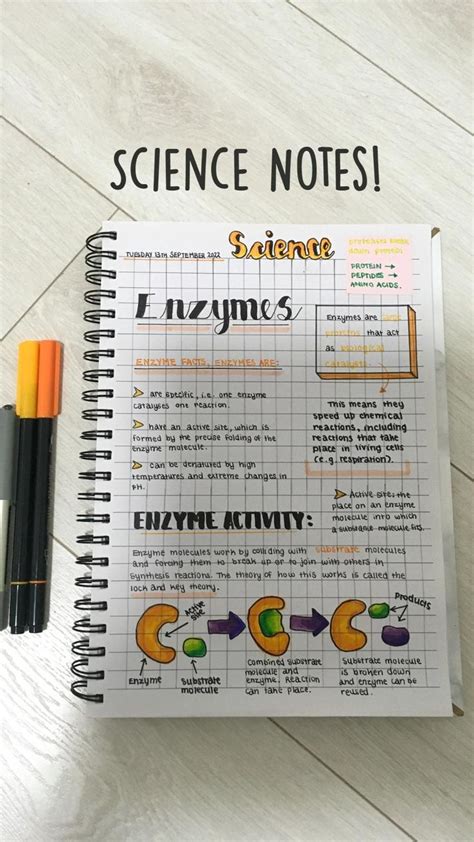 SCIENCE NOTES!
TUESDAY 13th SEPTEMBER 2022
Science
proteases break
down protein
PROTEIN →
PEPTIDES →
AMINO ACIDS.
Enzymes
Enzymes are
proteins that act
as biological
catalysts.
ENZYME FACTS, ENZYMES ARE:
are specific, i.e. one enzyme
catalyses one reaction.
have an active site, which is
formed by the precise folding of the
enzyme molecule.
can be denatured by high
temperatures and extreme changes in
pH.
This means they
speed up chemical
reactions, including
reactions that take
place in living cells
(e.g. respiration).
Active site: the
place on an enzyme
molecule into which
a substance molecule fits.
ENZYME ACTIVITY:
Enzyme molecules work by colliding with substrate molecules
and forcing them to break up or to join with others in
synthesis reactions. The theory of how this works is called the
lock and key theory.
Active
site
Products
Enzyme
Substrate
molecule
Combined substrate
molecule and
enzyme. Reaction
can take place.
Substrate molecule
is broken down
and enzyme can be
reused.